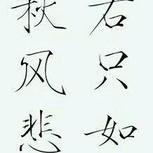 若只如
秋风悲